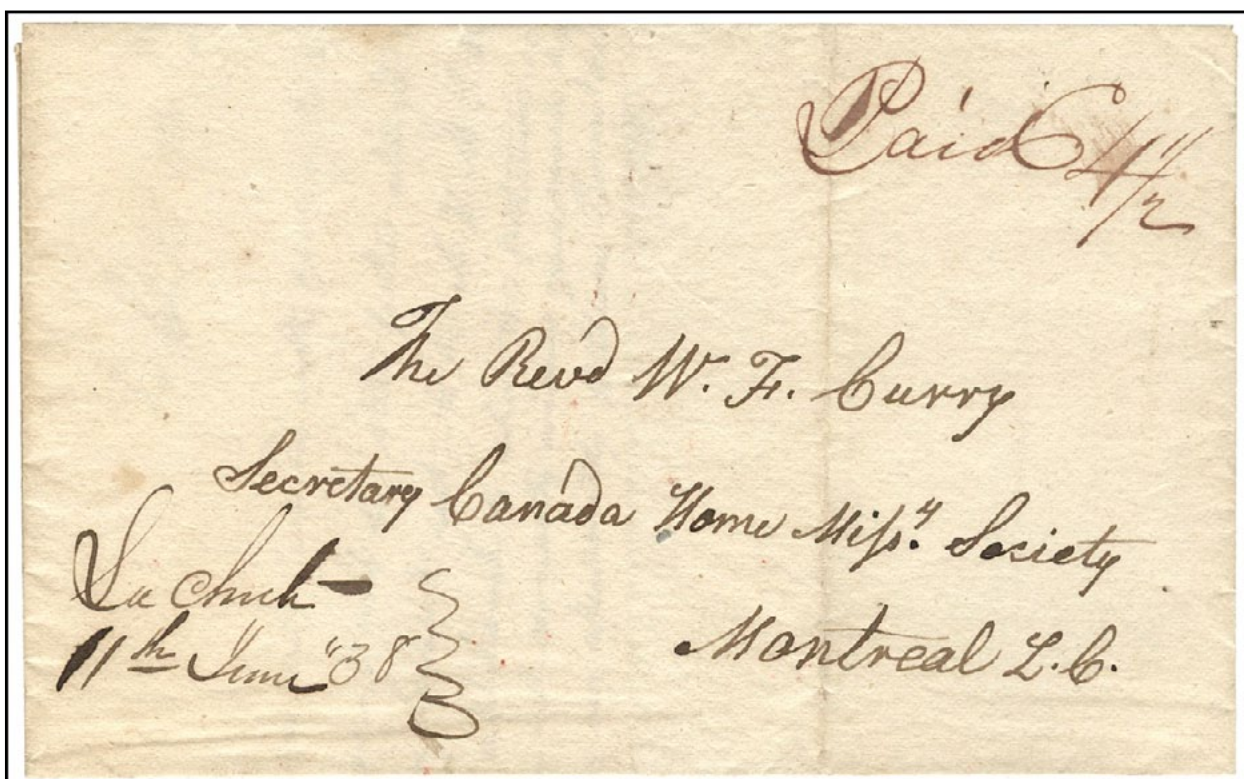 Paid 4 1/2
The Revd W. F. Curry
Secretary Canada Home Missy. Society
Montreal L.C.
La Chute
11th June '38